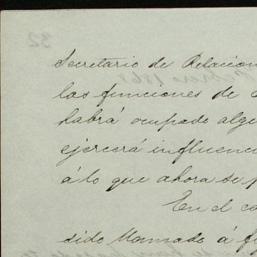 Secretario de Relacion
las funciones de
habrá ocupado algu
ejercerá influenci
á lo que ahora se p
En el ca
sido llamado á f